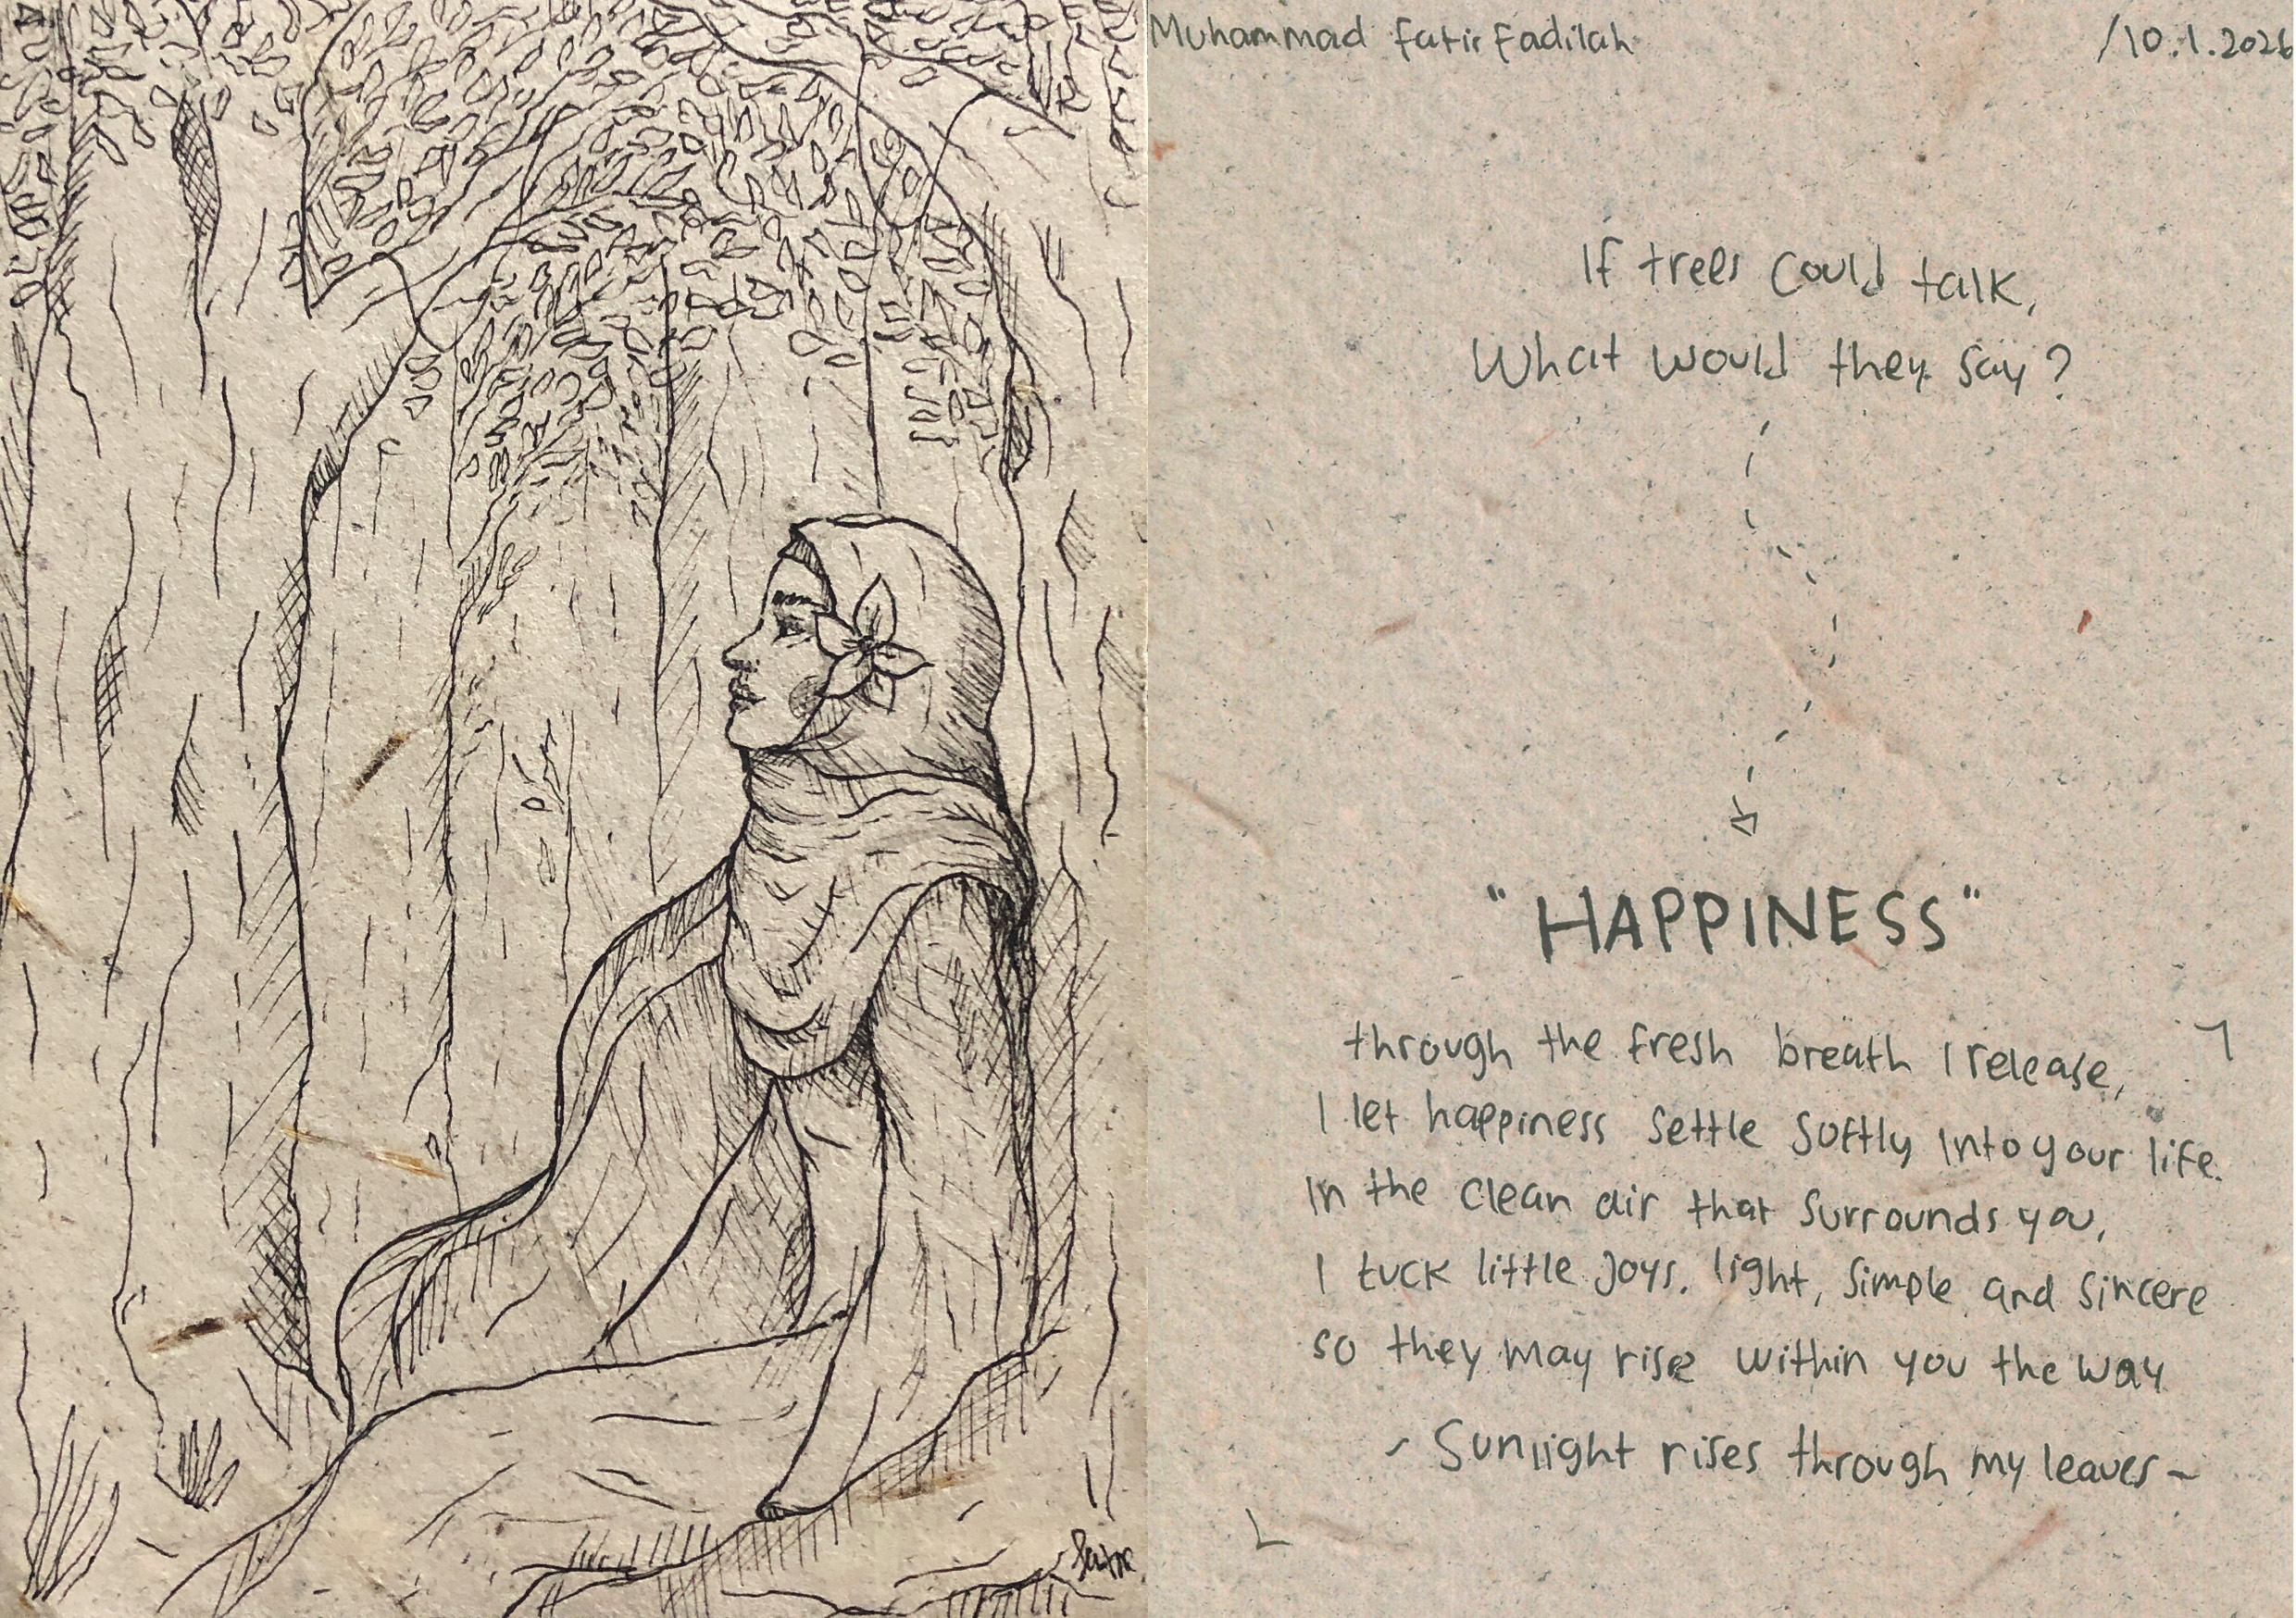 Muhammad Fatir Fadilah /10.1.2026
If trees could talk,
What would they say?
"HAPPINESS"
through the fresh breath I release,
I let happiness settle softly into your life.
In the clean air that surrounds you,
I tuck little joys. light, simple and sincere
so they may rise within you the way
~ Sunlight rises through my leaves ~